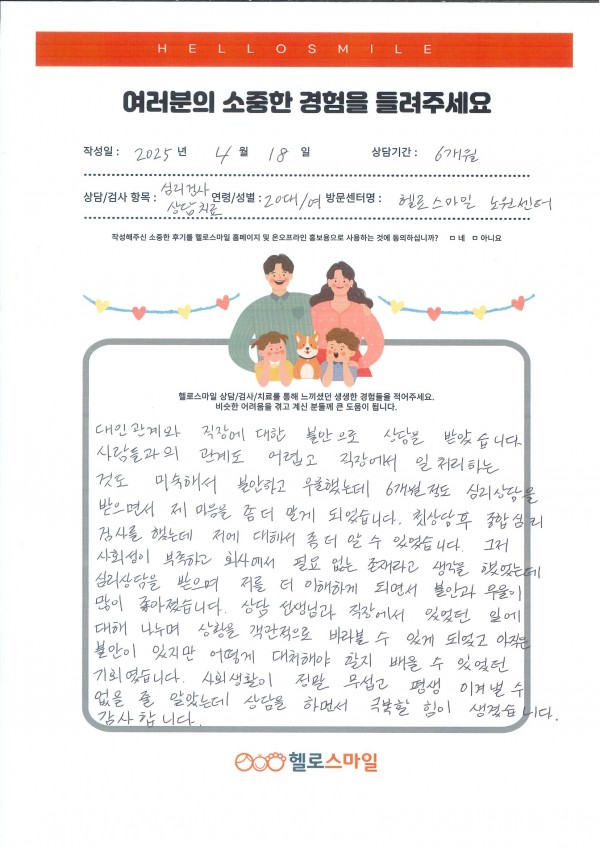 HELLOSMILE
여러분의 소중한 경험을 들려주세요
작성일 : 2025 년 4 월 18 일 상담기간 : 6개월
상담/검사 항목 : 심리검사 상담치료 연령/성별 : 20대/여 방문센터명 : 헬로스마일 노원센터
작성해주신 소중한 후기를 헬로스마일 홈페이지 및 온오프라인 홍보용으로 사용하는 것에 동의하십니까? ㅁ 네 ㅁ 아니요
헬로스마일 상담/검사/치료를 통해 느끼셨던 생생한 경험들을 적어주세요.
비슷한 어려움을 겪고 계신 분들께 큰 도움이 됩니다.
대인관계와 직장에 대한 불안으로 상담을 받았습니다.
사람들과의 관계도 어렵고 직장에서 일처리하는
것도 미숙해서 불안하고 우울했는데 6개월정도 심리상담을
받으면서 제 마음을 좀 더 알게 되었습니다. 첫상담후 종합심리
검사를 했는데 저에 대해서 좀 더 알 수 있었습니다. 그저
사회성이 부족하고 회사에서 필요 없는 존재라고 생각을 했었는데
심리상담을 받으며 저를 더 이해하게 되면서 불안과 우울이
많이 좋아졌습니다. 상담 선생님과 직장에서 있었던 일에
대해 나누며 상황을 객관적으로 바라볼 수 있게 되었고 아직은
불안이 있지만 어떻게 대처해야 할지 배울 수 있었던
기회였습니다. 사회생활이 정말 무섭고 평생 이겨낼 수
없을 줄 알았는데 상담을 하면서 극복할 힘이 생겼습니다.
감사합니다.
헬로스마일